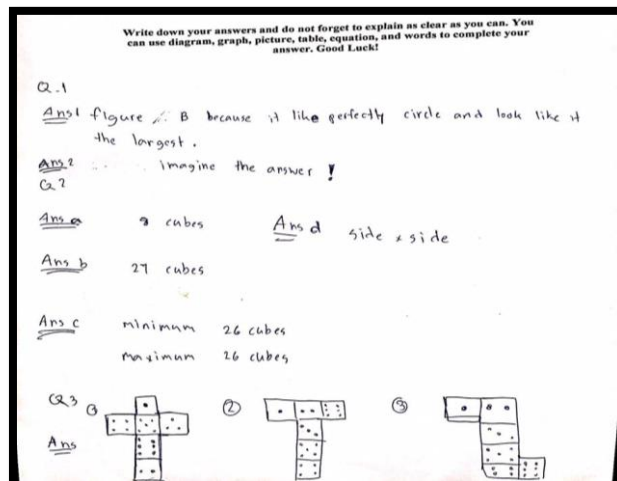 Write down your answers and do not forget to explain as clear as you can. You
can use diagram, graph, picture, table, equation, and words to complete your
answer. Good Luck!
Q.1
Ans1 figure B because it like perfectly circle and look like it
the largest.
Ans2 imagine the answer !
Q2
Ans a 9 cubes Ans d side x side
Ans b 27 cubes
Ans c minimum 26 cubes
maximum 26 cubes
Q3 1 2 3
Ans